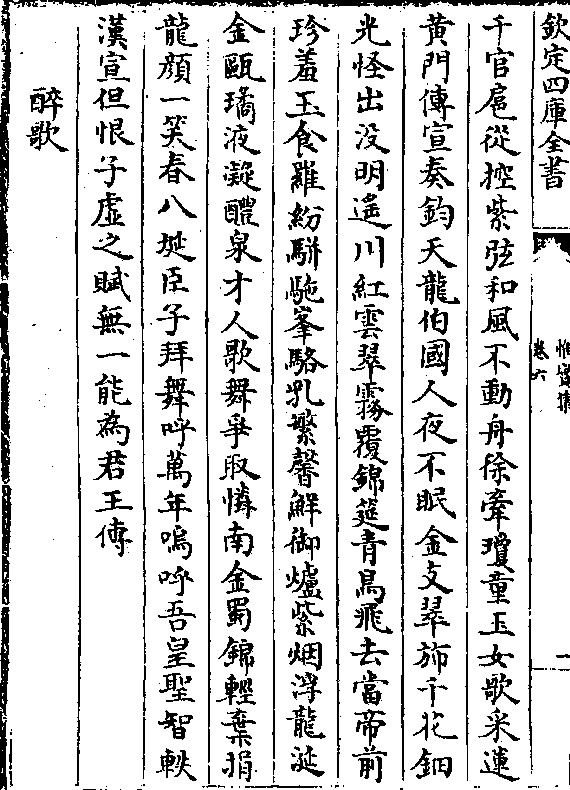 欽定四庫全書
卷六
千官扈從控紫弦和風不動舟徐牽瓊童玉女歌采蓮
黄門傳宣奏鈞天龍伯國人夜不眠金支翠斾千花鈿
光怪出没明遥川紅雲翠霧覆錦筵青鳥飛去當帝前
珍羞玉食羅紛駢駞峯駱乳繁馨鮮御爐紫烟浮龍涎
金甌璚液凝醴泉才人歌舞爭取憐南金蜀錦輕棄捐
龍顔一笑春八埏臣子拜舞呼萬年嗚呼吾皇聖智軼
漢宣但恨子虚之賦無一能為君王傳
醉歌